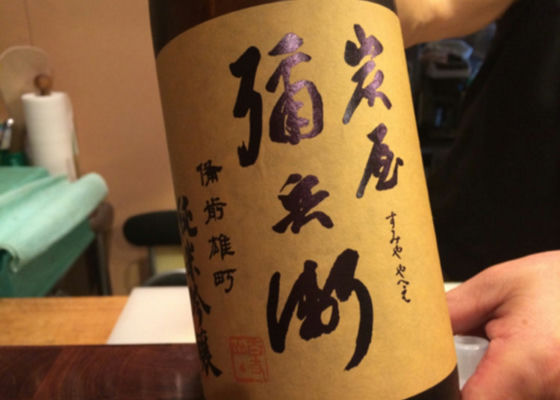 炭屋
彌兵衛
すみや やへゑ
備前雄町
純米吟醸